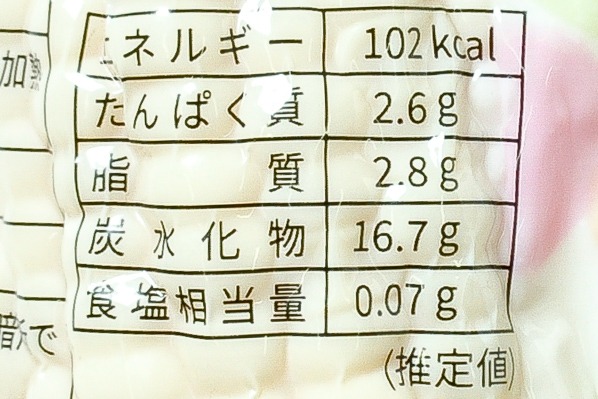 エネルギー 102kcal
たんぱく質 2.6g
脂質 2.8g
炭水化物 16.7g
食塩相当量 0.07g
(推定値)
加熱
で